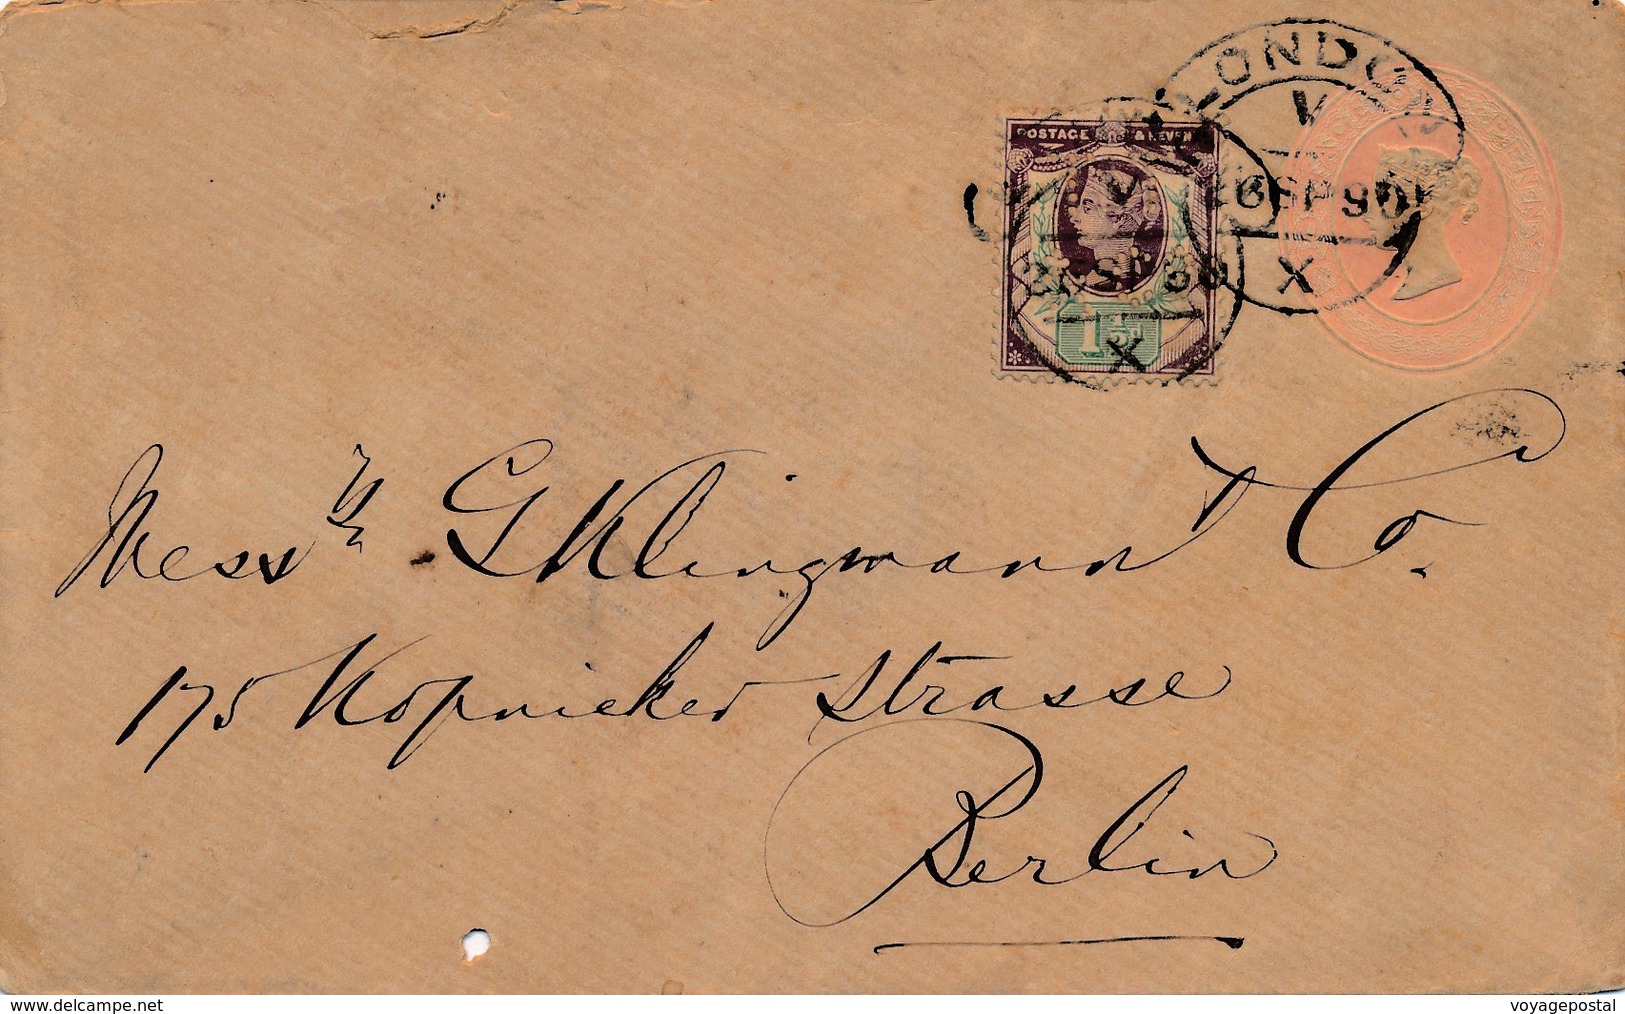 LONDON
V
26 SP 90
X
POSTAGE & REVEN
V
26 SP 90
X
1½D
Messrs G Klingmann & Co.
175 Kopnicker Strasse
Berlin
www.delcampe.net
voyagepostal